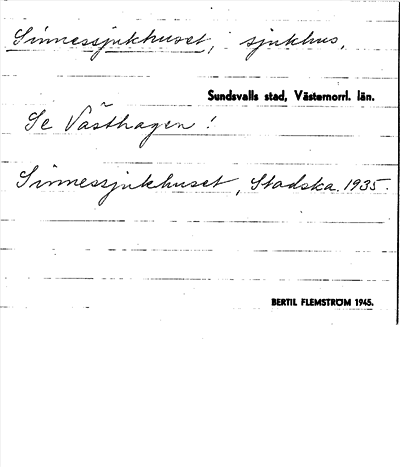 Sinnessjukhuset, sjukhus,
Sundsvalls stad, Västernorrl. län.
Se Västhagen!
Sinnessjukhuset, Stadska. 1935.
BERTIL FLEMSTRÖM 1945.